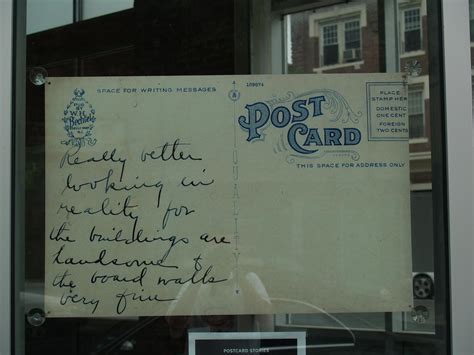 SPACE FOR WRITING MESSAGES
BY
W.H.
POST CARD
PLACE
STAMP HERE
DOMESTIC
ONE CENT
FOREIGN
TWO CENTS
THIS SPACE FOR ADDRESS ONLY
QUALITY
Really better
looking in
reality for
the buildings are
handsome &
the board walks
very fine
POSTCARD STORIES